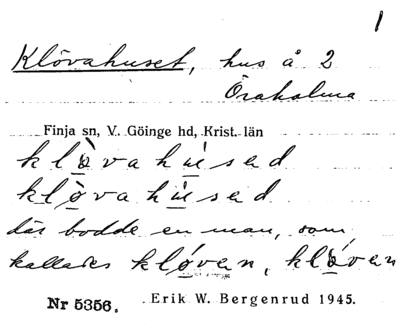 1
Klövahuset, hus å 2
Öraholma
Finja sn, V. Göinge hd, Krist. län
kløvahused
kløvahused
där bodde en man, som
kallades kløven, kløven
Nr 5356. Erik W. Bergenrud 1945.